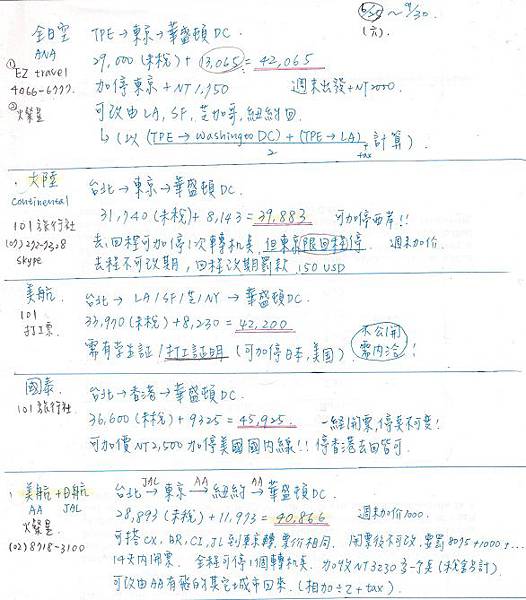 6/15 ~ 9/30.
(六).
全日空 TPE→東京→華盛頓DC.
ANA 29,000(未稅)+13,065=42,065
① EZ travel 加停東京+NT1,950 週末出發+NT2000.
4066-6777
② 燦星 可改由LA, SF, 芝加哥, 紐約回.
↳(以 (TPE→Washington DC)+(TPE→LA) / 2 + tax 計算).
大陸 台北→東京→華盛頓DC.
Continental 31,740(未稅)+8,143=39,883 可加停西岸!!
101旅行社 去,回程可加停1次轉機點,但東京限回程停. 週末加價.
Skype 去程不可改期,回程改期罰款 150 USD
美航. 台北→LA/SF/芝/NY→華盛頓DC.
101 33,970(未稅)+8,230=42,200 未公開
打工票. 需有學生証/打工証明(可加停日本,美國). 需內洽!
國泰. 台北→香港→華盛頓DC.
101旅行社 36,600(未稅)+9325=45,925. 一經開票,停點不可變!
可加價NT2,500加停美國國內線!! 停香港去回皆可.
美航+日航 台北 JAL→東京 AA→紐約 AA→華盛頓DC.
AA JAL 28,893(未稅)+11,973=40,866 週末加價1000.
燦星
(02)8718-3100 可搭CX, BR, CI, JL到東京轉,票價相同. 開票後不可改,要罰8095+1000+...
14天內開票. 全程可停1個轉機點. 加收NT3230 (稅金另計)
可改由AA有飛的其它城市回來. (相加÷2+tax).